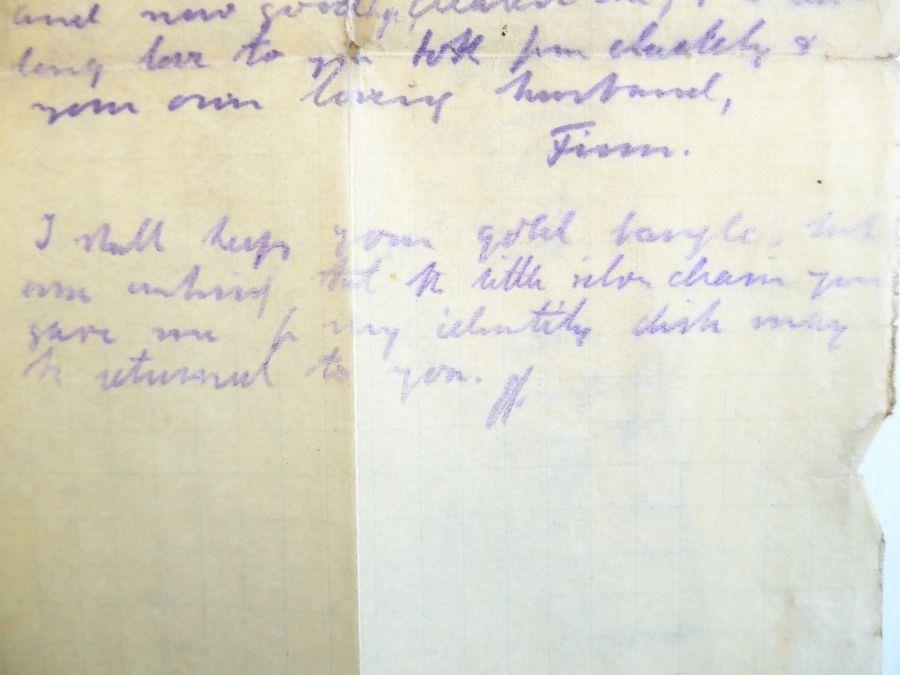 and now goodbye, dearest
long love to you both from daddy &
your own loving husband,
Finn.
I shall keep your gold bangle, but
am asking that the little silver chain you
gave me for my identity disk may
be returned to you.